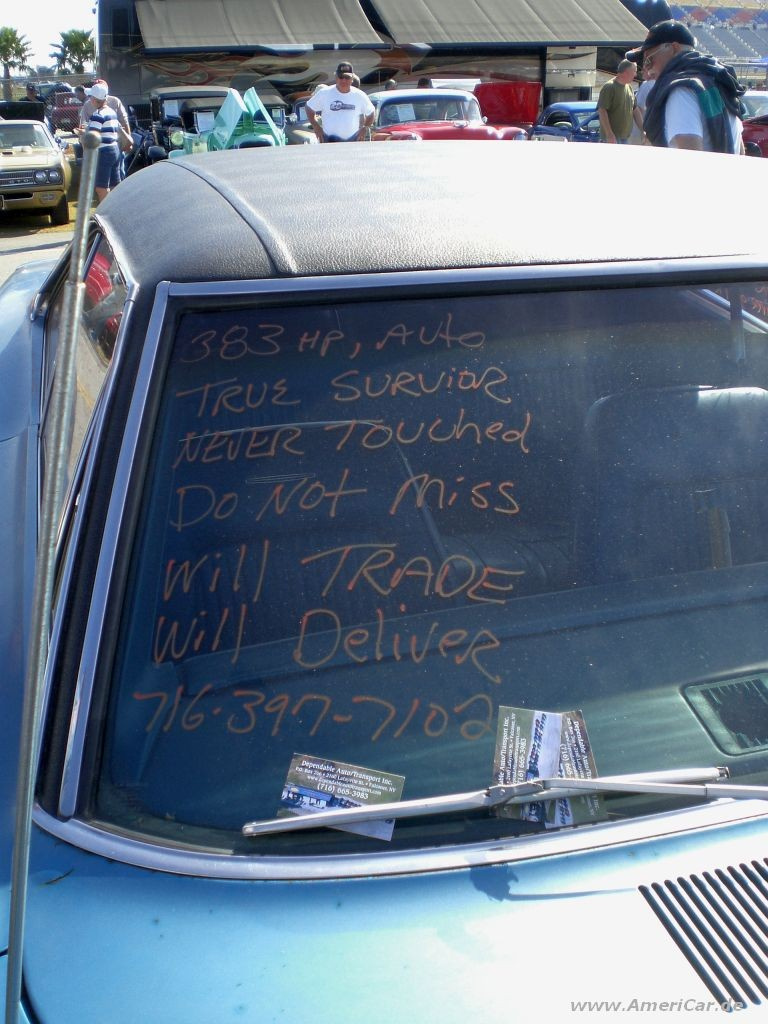 383 HP, Auto
TRUE SURVIOR
NEVER Touched
Do Not Miss
Will TRADE
Will Deliver
716-397-7102
Dependable Auto/Transport Inc.
(716) 665-3983
Dependable Auto/Transport Inc.
(716) 665-3983
www.AmeriCar.de